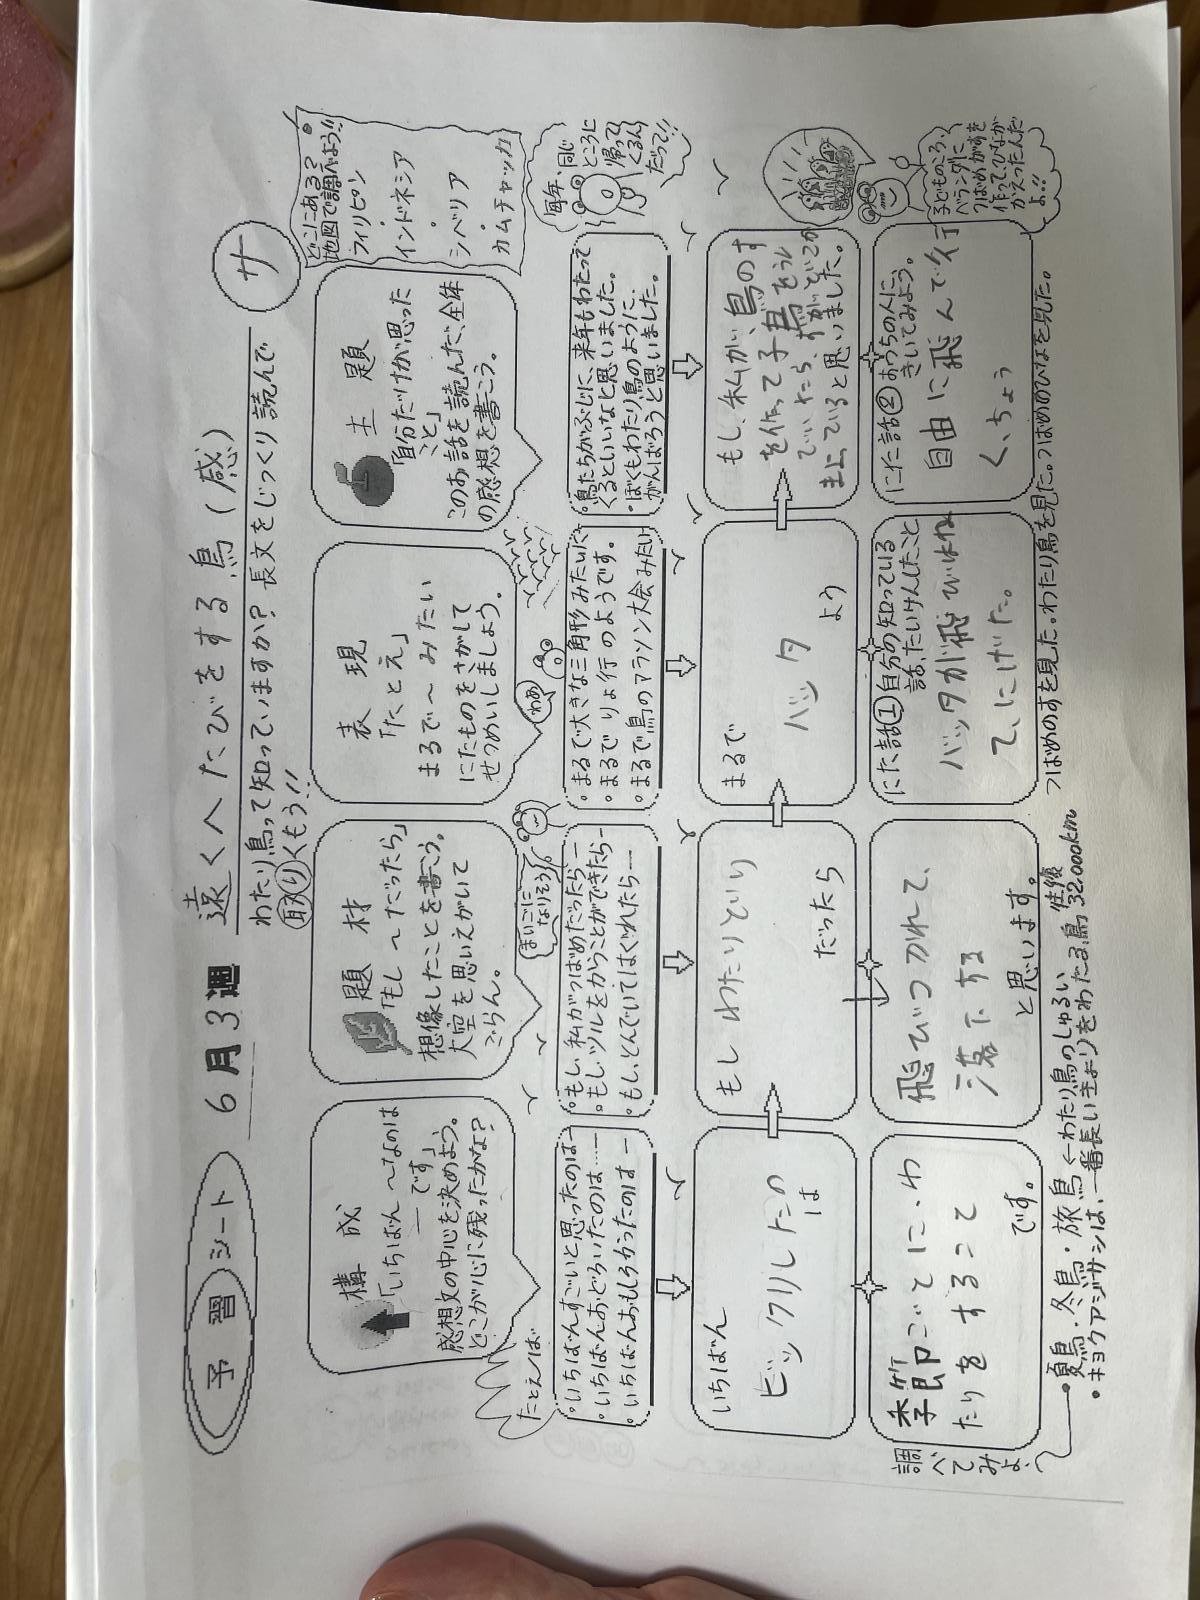 予習シート 6月3週 遠くへたびをする鳥(感) サ
わたり鳥って知っていますか?長文をじっくり読んで
取りくもう!!
どこにある?
地図で調べよう!!
フィリピン
・
インドネシア
・
シベリア
・
カムチャッカ
構成
「いちばん〜なのは
―です」
感想文の中心を決めよう。
どこが心に残ったかな?
題材
「もし〜だったら」
想像したことを書こう。
大空を思いえがいて
ごらん。
表現
「たとえ」
まるで〜みたい
にたものをさがして
せつめいしましょう。
主題
「自分だけが思った
こと」
このお話を読んだ、全体
の感想を書こう。
たとえば
まいごに
なりそう
わあ
毎年、同じ
ところに
帰って
くるん
だって!!
・いちばんすごいと思ったのは―
・いちばんおどろいたのは……
・いちばんおもしろかったのは―
・もし、私がつばめだったら―
・もし、ツルをかうことができたら―
・もし、とんでいてはぐれたら―
・まるで大きな三角形みたいに
・まるでりょ行のようです。
・まるで鳥のマラソン大会みたい
・鳥たちがぶじに、来年もわたって
くるといいなと思いました。
・ぼくもわたり鳥のように、
がんばろうと思いました。
いちばん
ビックリしたの
は
もしわたりどり
だったら
まるで
バッタ
よう
もし、私が、鳥のす
を作って子鳥をうん
でいたら、
ていると思いました。
季節ごとに、わ
たりをすること
です。
飛びつかれて、
落下する
と思います。
にた話①自分の知っている
話、たいけんしたこと
バッタが飛びはね
てにげた。
にた話②おうちの人に、
きいてみよう。
自由に飛んで行
く、ちょう
子どものころ、
ベランダに
つばめがすを
作ってひなが
かえったんだ
よ!!
調べてみよ
・夏鳥・冬鳥・旅鳥←わたり鳥のしゅるい
・キョクアジサシは、一番長いきょりをわたる鳥 往復32,000km
つばめのすを見た。わたり鳥を見た。つばめのひなを見た。